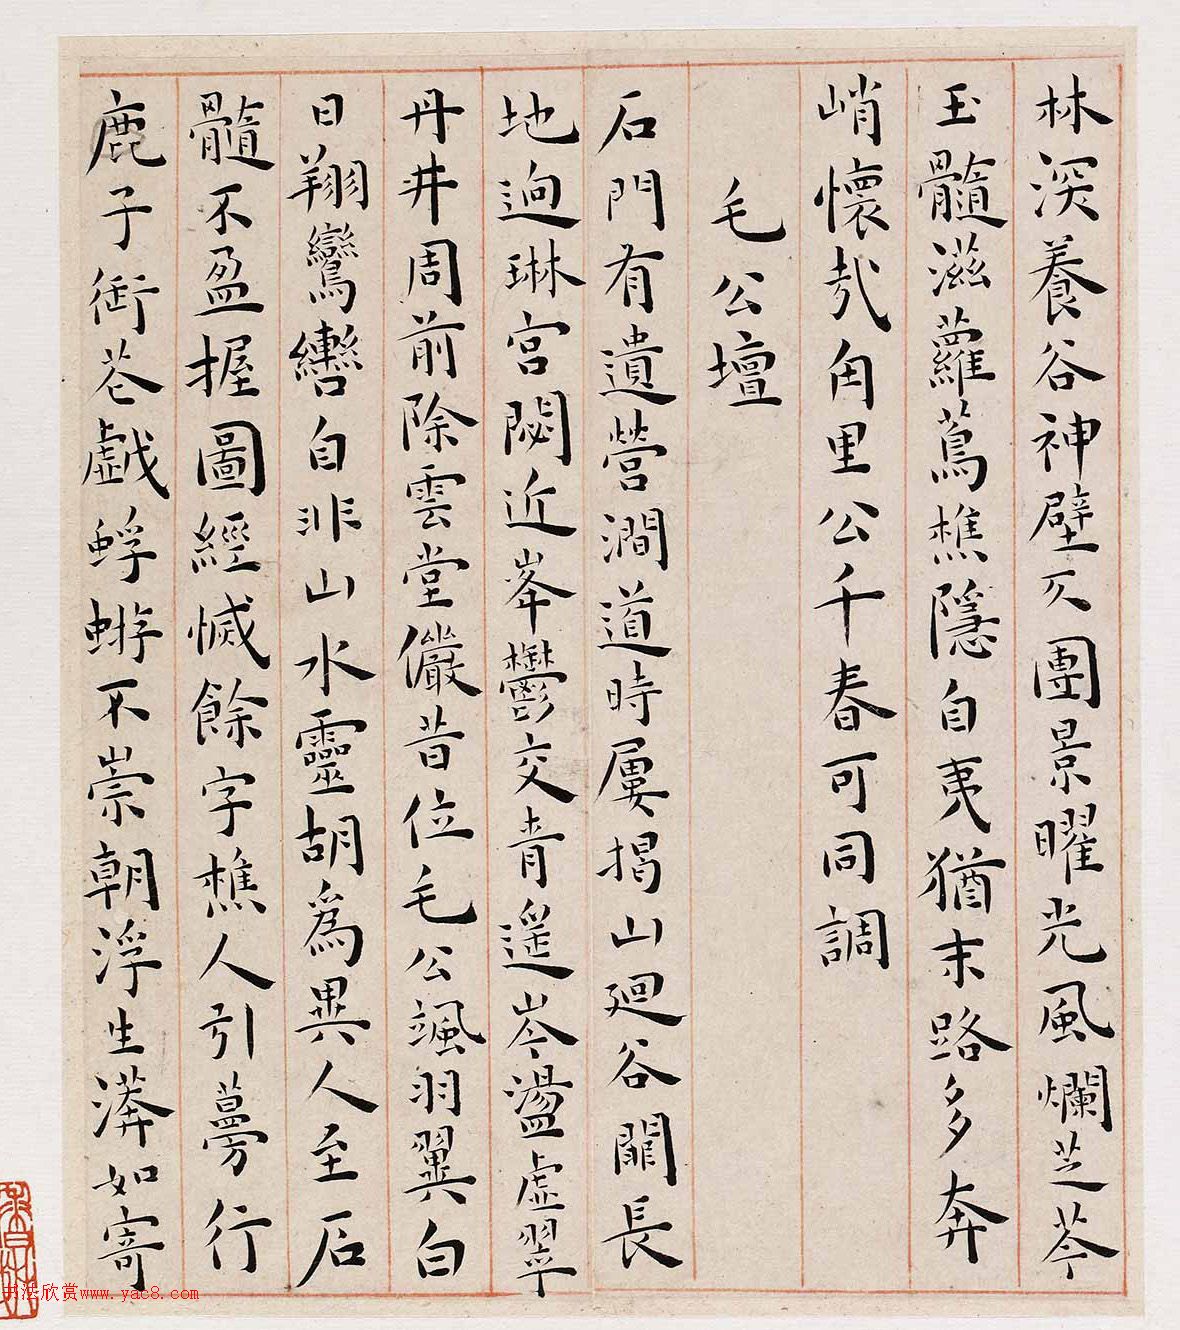 林深養谷神壁仄團景曜光風爛芝苓
玉髓滋蘿蔦樵隱自夷猶末路多奔
峭懷哉甪里公千春可同調
毛公壇
石門有遺營澗道時屢揭山廻谷關長
地迥琳宮閟近峯鬱交青遥岑盪虛翠
丹井周前除雲堂儼昔位毛公颯羽翼白
日翔鸞轡自非山水靈胡為異人至石
髓不盈握圖經惐餘字樵人引蔓旁行
鹿子銜花戲蜉蝣不崇朝浮生漭如寄
书法欣赏www.yac8.com